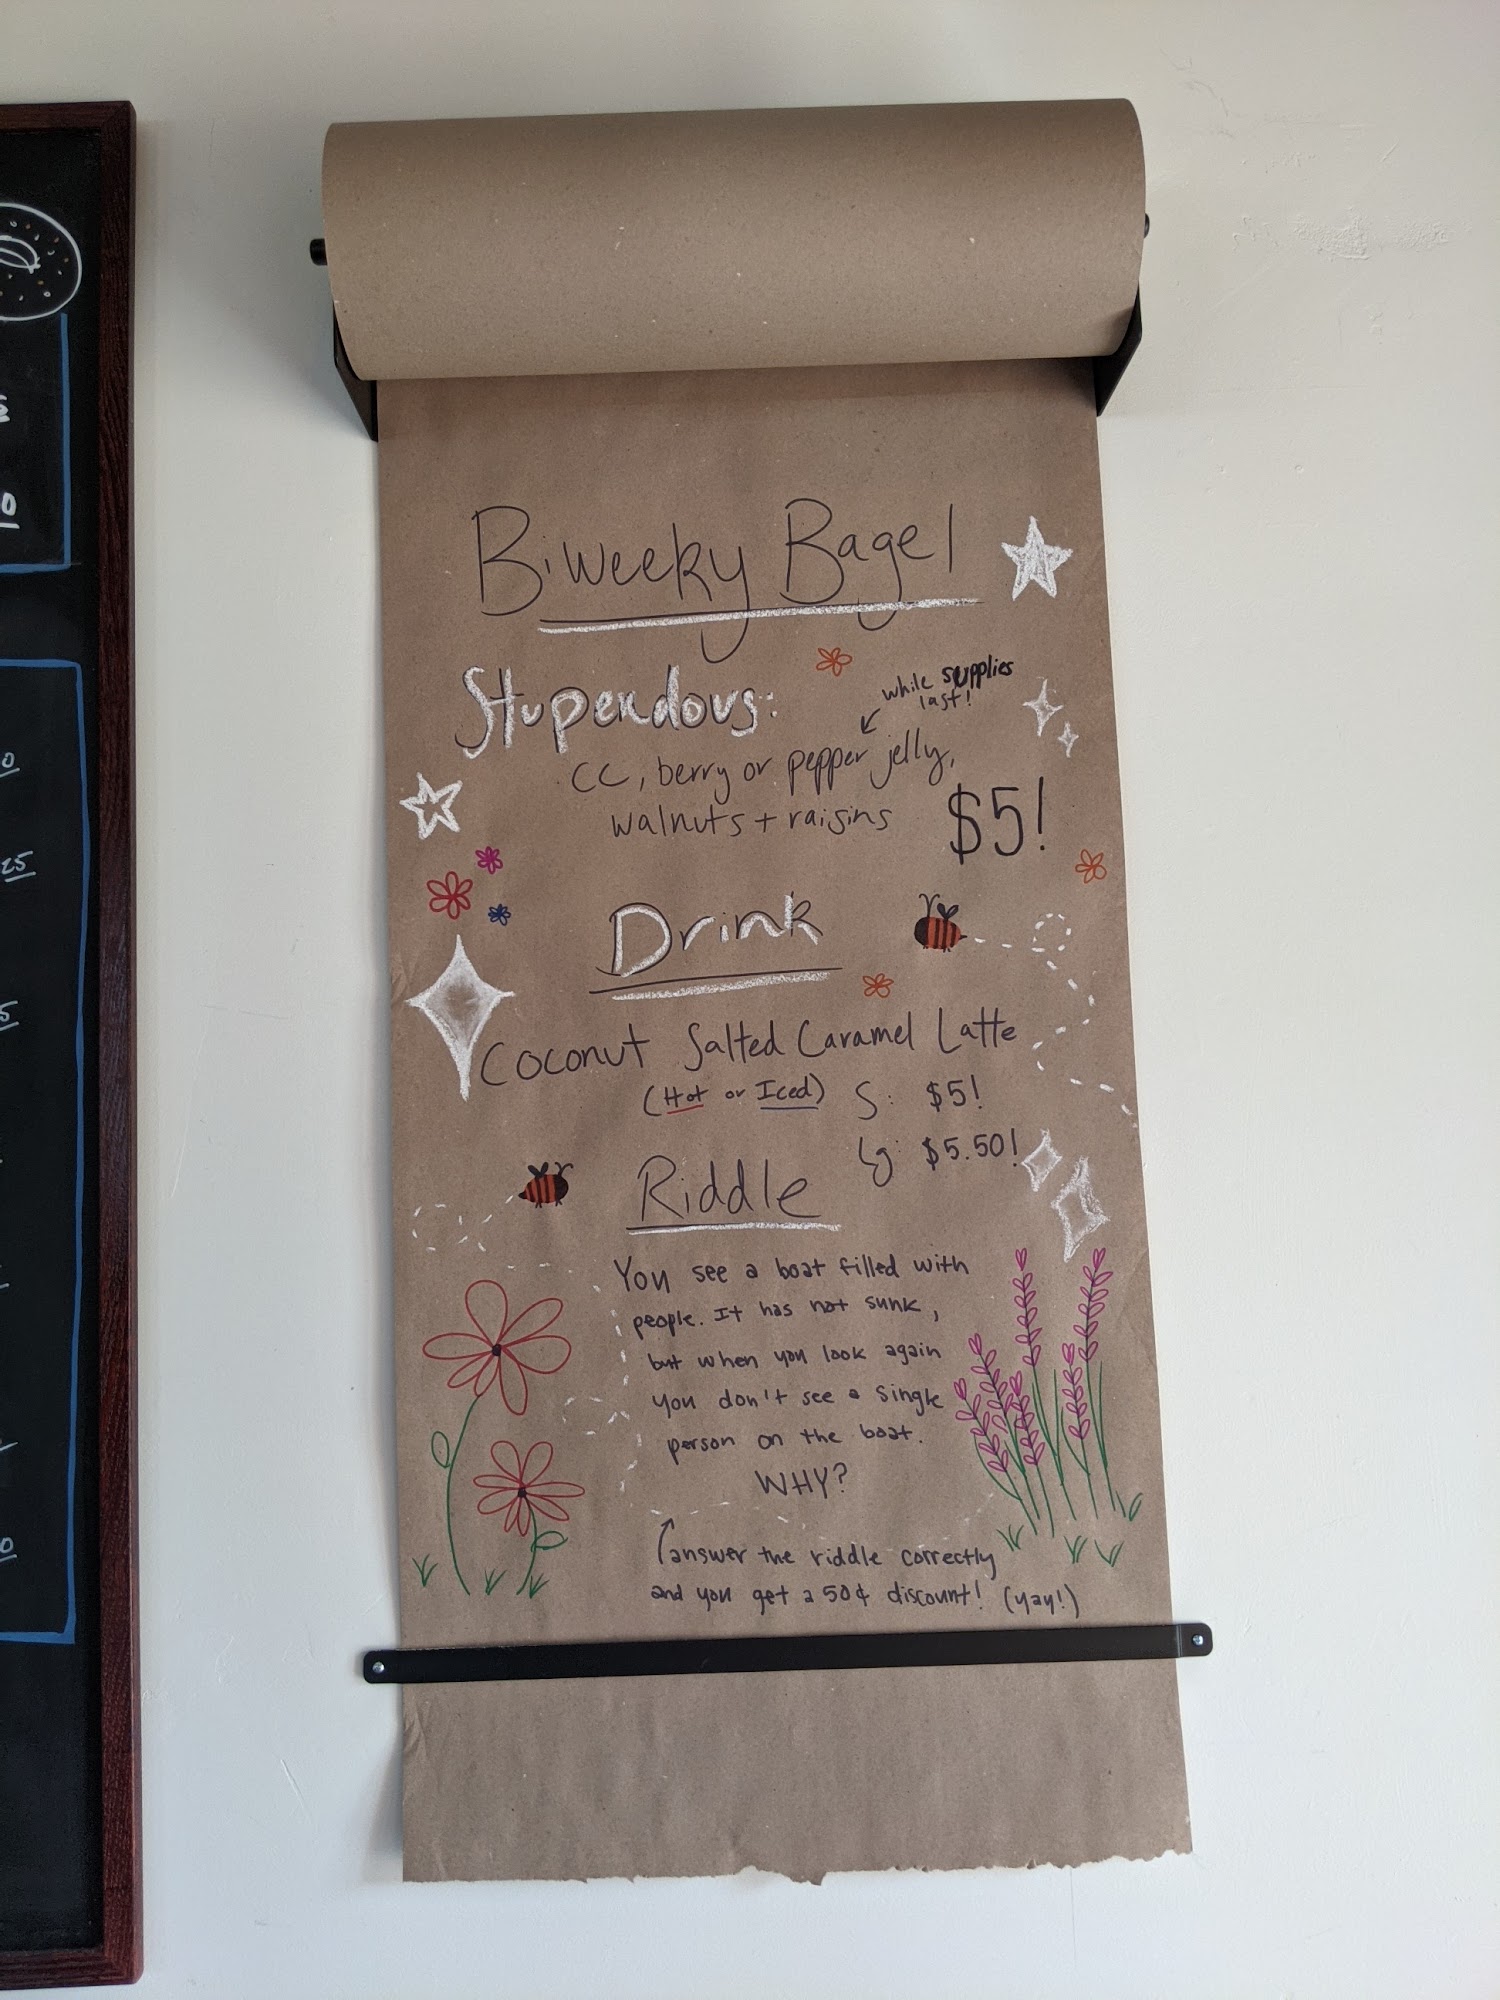 Biweeky Bagel
Stupendous:
while supplies
last!
CC, berry or pepper jelly,
walnuts + raisins
$5!
Drink
Coconut Salted Caramel Latte
(Hot or Iced) S: $5!
Lg: $5.50!
Riddle
You see a boat filled with
people. It has not sunk,
but when you look again
you don't see a single
person on the boat.
WHY?
answer the riddle correctly
and you get a 50¢ discount! (yay!)
10
25